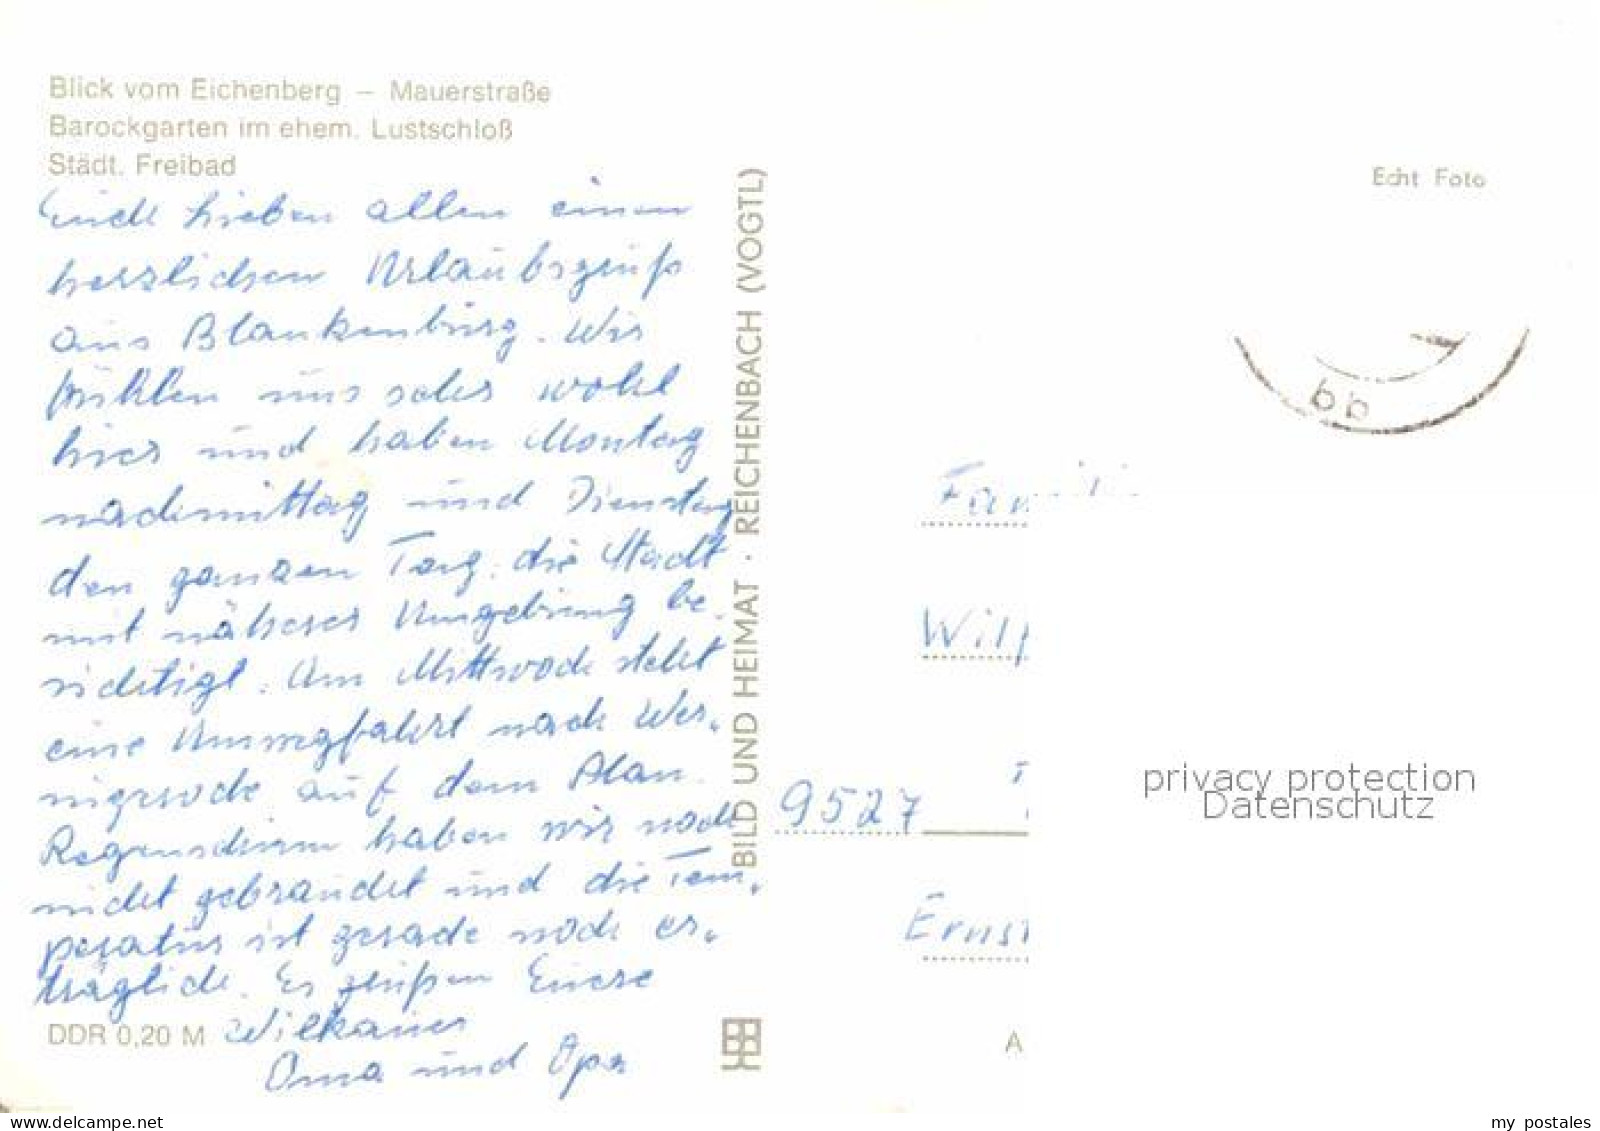 Blick vom Eichenberg – Mauerstraße
Barockgarten im ehem. Lustschloß
Städt. Freibad
Echt Foto
Euch lieben allen einen
herzlichen Urlaubsgruß
aus Blankenburg. Wir
fühlen uns sehr wohl
hier und haben Montag
nachmittag und Dienstag
den ganzen Tag, die Stadt
mit näherer Umgebung be-
sichtigt. Am Mittwoch steht
eine Umwegfahrt nach Wer-
nigerode auf dem Plan.
Regenschirm haben wir noch
nicht gebraucht und die Tem-
peratur ist gerade noch er-
träglich. Es grüßen Eure
Wilkauer
Oma und Opa
DDR 0,20 M
BILD UND HEIMAT · REICHENBACH (VOGTL)
bb
9527
Ernst
A
privacy protection
Datenschutz
www.delcampe.net
my_postales